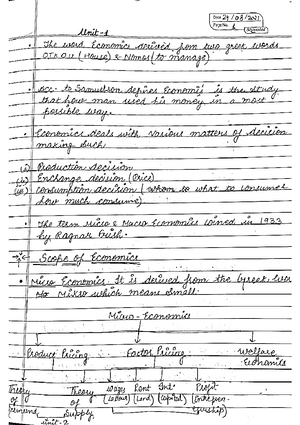 Date 29/03/2021
Page No. 1
Unit-1
• The word Economics derived from two greek words
OIKOU (House) & Nomos (to manage)
• acc. to Samuelson defines Economics is the study
that how man used his money in a most
possible way.
• Economics deals with various matters of decision
making such
(i) Production decision
(ii) Exchange decision (Price)
(iii) consumption decision (whom so what so consumes
how much consume)
• The term Micro & Macro Economics coined in 1933
by Ragnar Frish.
Scope of Economics
• Micro Economics. It is derived from the Greek, wor
Mikro which means small.
Micro-Economics
Product Pricing Factor Pricing Welfare
Economics
Theory Theory wages Rent Int Profit
of of (Labour) (Land) (Capital) (Entrepen-
Supply eurship)
unit-2